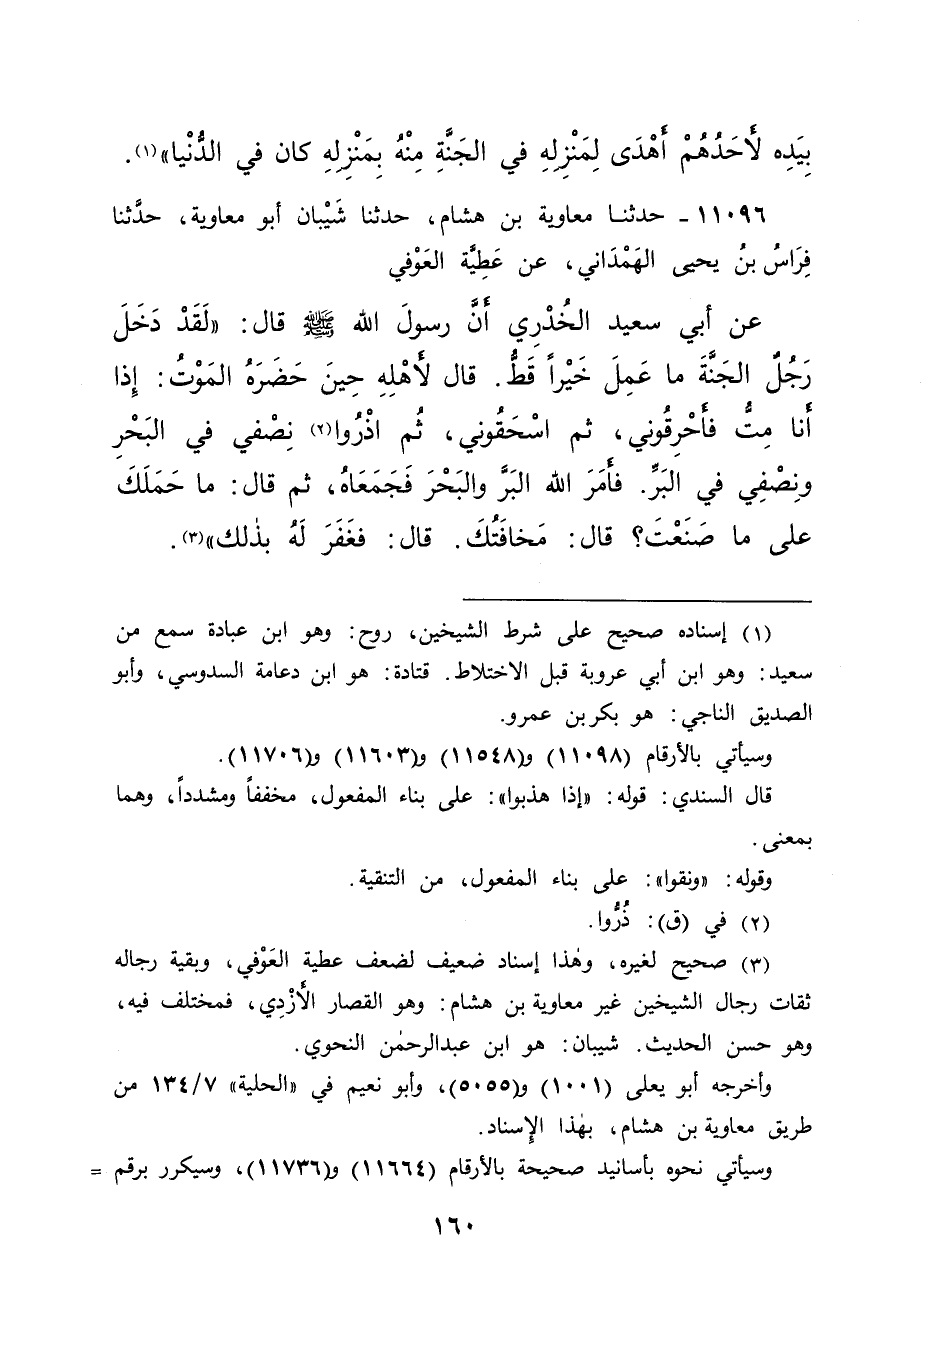 بِيَدِه لأَحَدُهُمْ أَهْدَى لِمَنْزِلِهِ في الجَنَّةِ مِنْهُ بِمَنْزِلِهِ كان في الدُّنْيا»(١).
١١٠٩٦ ـ حدثنـا معاوية بن هشام، حدثنا شَيْبان أبو معاوية، حدَّثنا
فِرَاسُ بنُ يحيى الهَمْدَاني، عن عَطِيَّة العَوْفي
عن أبي سعيد الخُدْرِي أَنَّ رسولَ الله ﷺ قال: «لَقَدْ دَخَلَ
رَجُلٌ الجَنَّةَ ما عَمِلَ خَيْراً قَطُّ. قال لأَهْلِهِ حِينَ حَضَرَهُ المَوْتُ: إِذا
أَنا مِتُّ فأَحْرِقُوني، ثم اسْحَقُوني، ثُم اذْرُوا(٢) نِصْفي في البَحْرِ
ونِصْفِي في البَرِّ. فأَمَرَ الله البَرَّ والبَحْرَ فَجَمَعَاهُ، ثم قال: ما حَمَلَكَ
على ما صَنَعْتَ؟ قال: مَخافَتُكَ. قال: فغَفَرَ لَهُ بذٰلك»(٣).
(١) إسناده صحيح على شرط الشيخين، روح: وهو ابن عبادة سمع من
سعيد: وهو ابن أبي عروبة قبل الاختلاط. قتادة: هو ابن دعامة السدوسي، وأبو
الصديق الناجي: هو بكر بن عمرو.
وسيأتي بالأرقام (١١٠٩٨) و(١١٥٤٨) و(١١٦٠٣) و(١١٧٠٦).
قال السندي: قوله: «إذا هذبوا»: على بناء المفعول، مخففاً ومشدداً، وهما
بمعنى.
وقوله: «ونقوا»: على بناء المفعول، من التنقية.
(٢) في (ق): ذُرُّوا.
(٣) صحيح لغيره، وهٰذا إسناد ضعيف لضعف عطية العَوْفي، وبقية رجاله
ثقات رجال الشيخين غير معاوية بن هشام: وهو القصار الأَزْدِي، فمختلف فيه،
وهو حسن الحديث. شيبان: هو ابن عبدالرحمٰن النحوي.
وأخرجه أبو يعلى (١٠٠١) و(٥٠٥٥)، وأبو نعيم في «الحلية» ١٣٤/٧ من
طريق معاوية بن هشام، بهٰذا الإسناد.
وسيأتي نحوه بأسانيد صحيحة بالأرقام (١١٦٦٤) و(١١٧٣٦)، وسيكرر برقم =
١٦٠